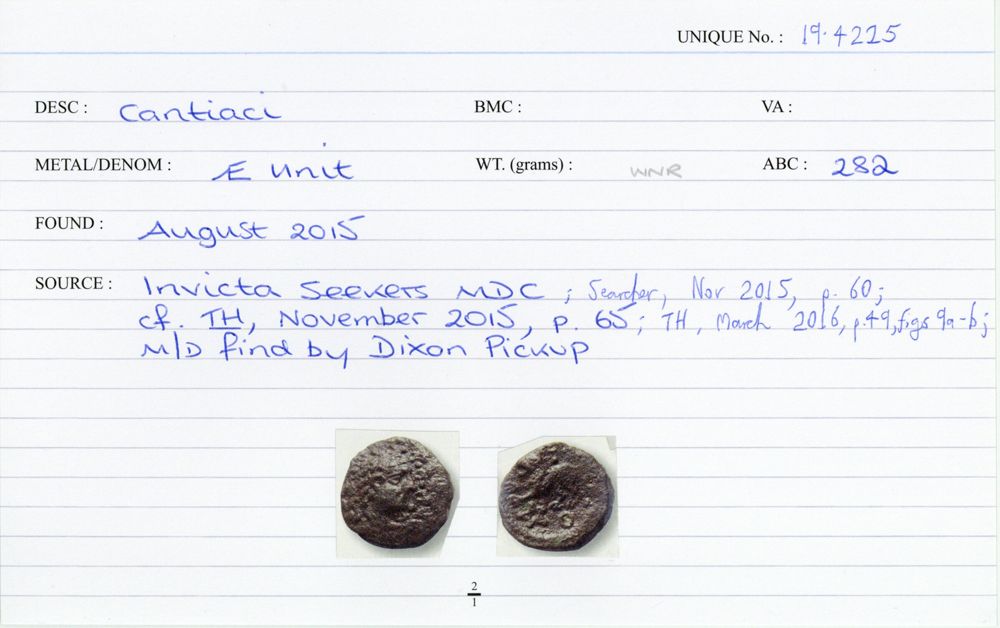 UNIQUE No. : 19.4225
DESC : Cantiaci BMC : VA :
METAL/DENOM : Æ Unit WT. (grams) : WNR ABC : 282
FOUND : August 2015
SOURCE : Invicta Seekers MDC ; Searcher, Nov 2015, p. 60;
cf. TH, November 2015, p. 65; TH, March 2016, p.49, figs 9a-b;
M/D find by Dixon Pickup
2
1